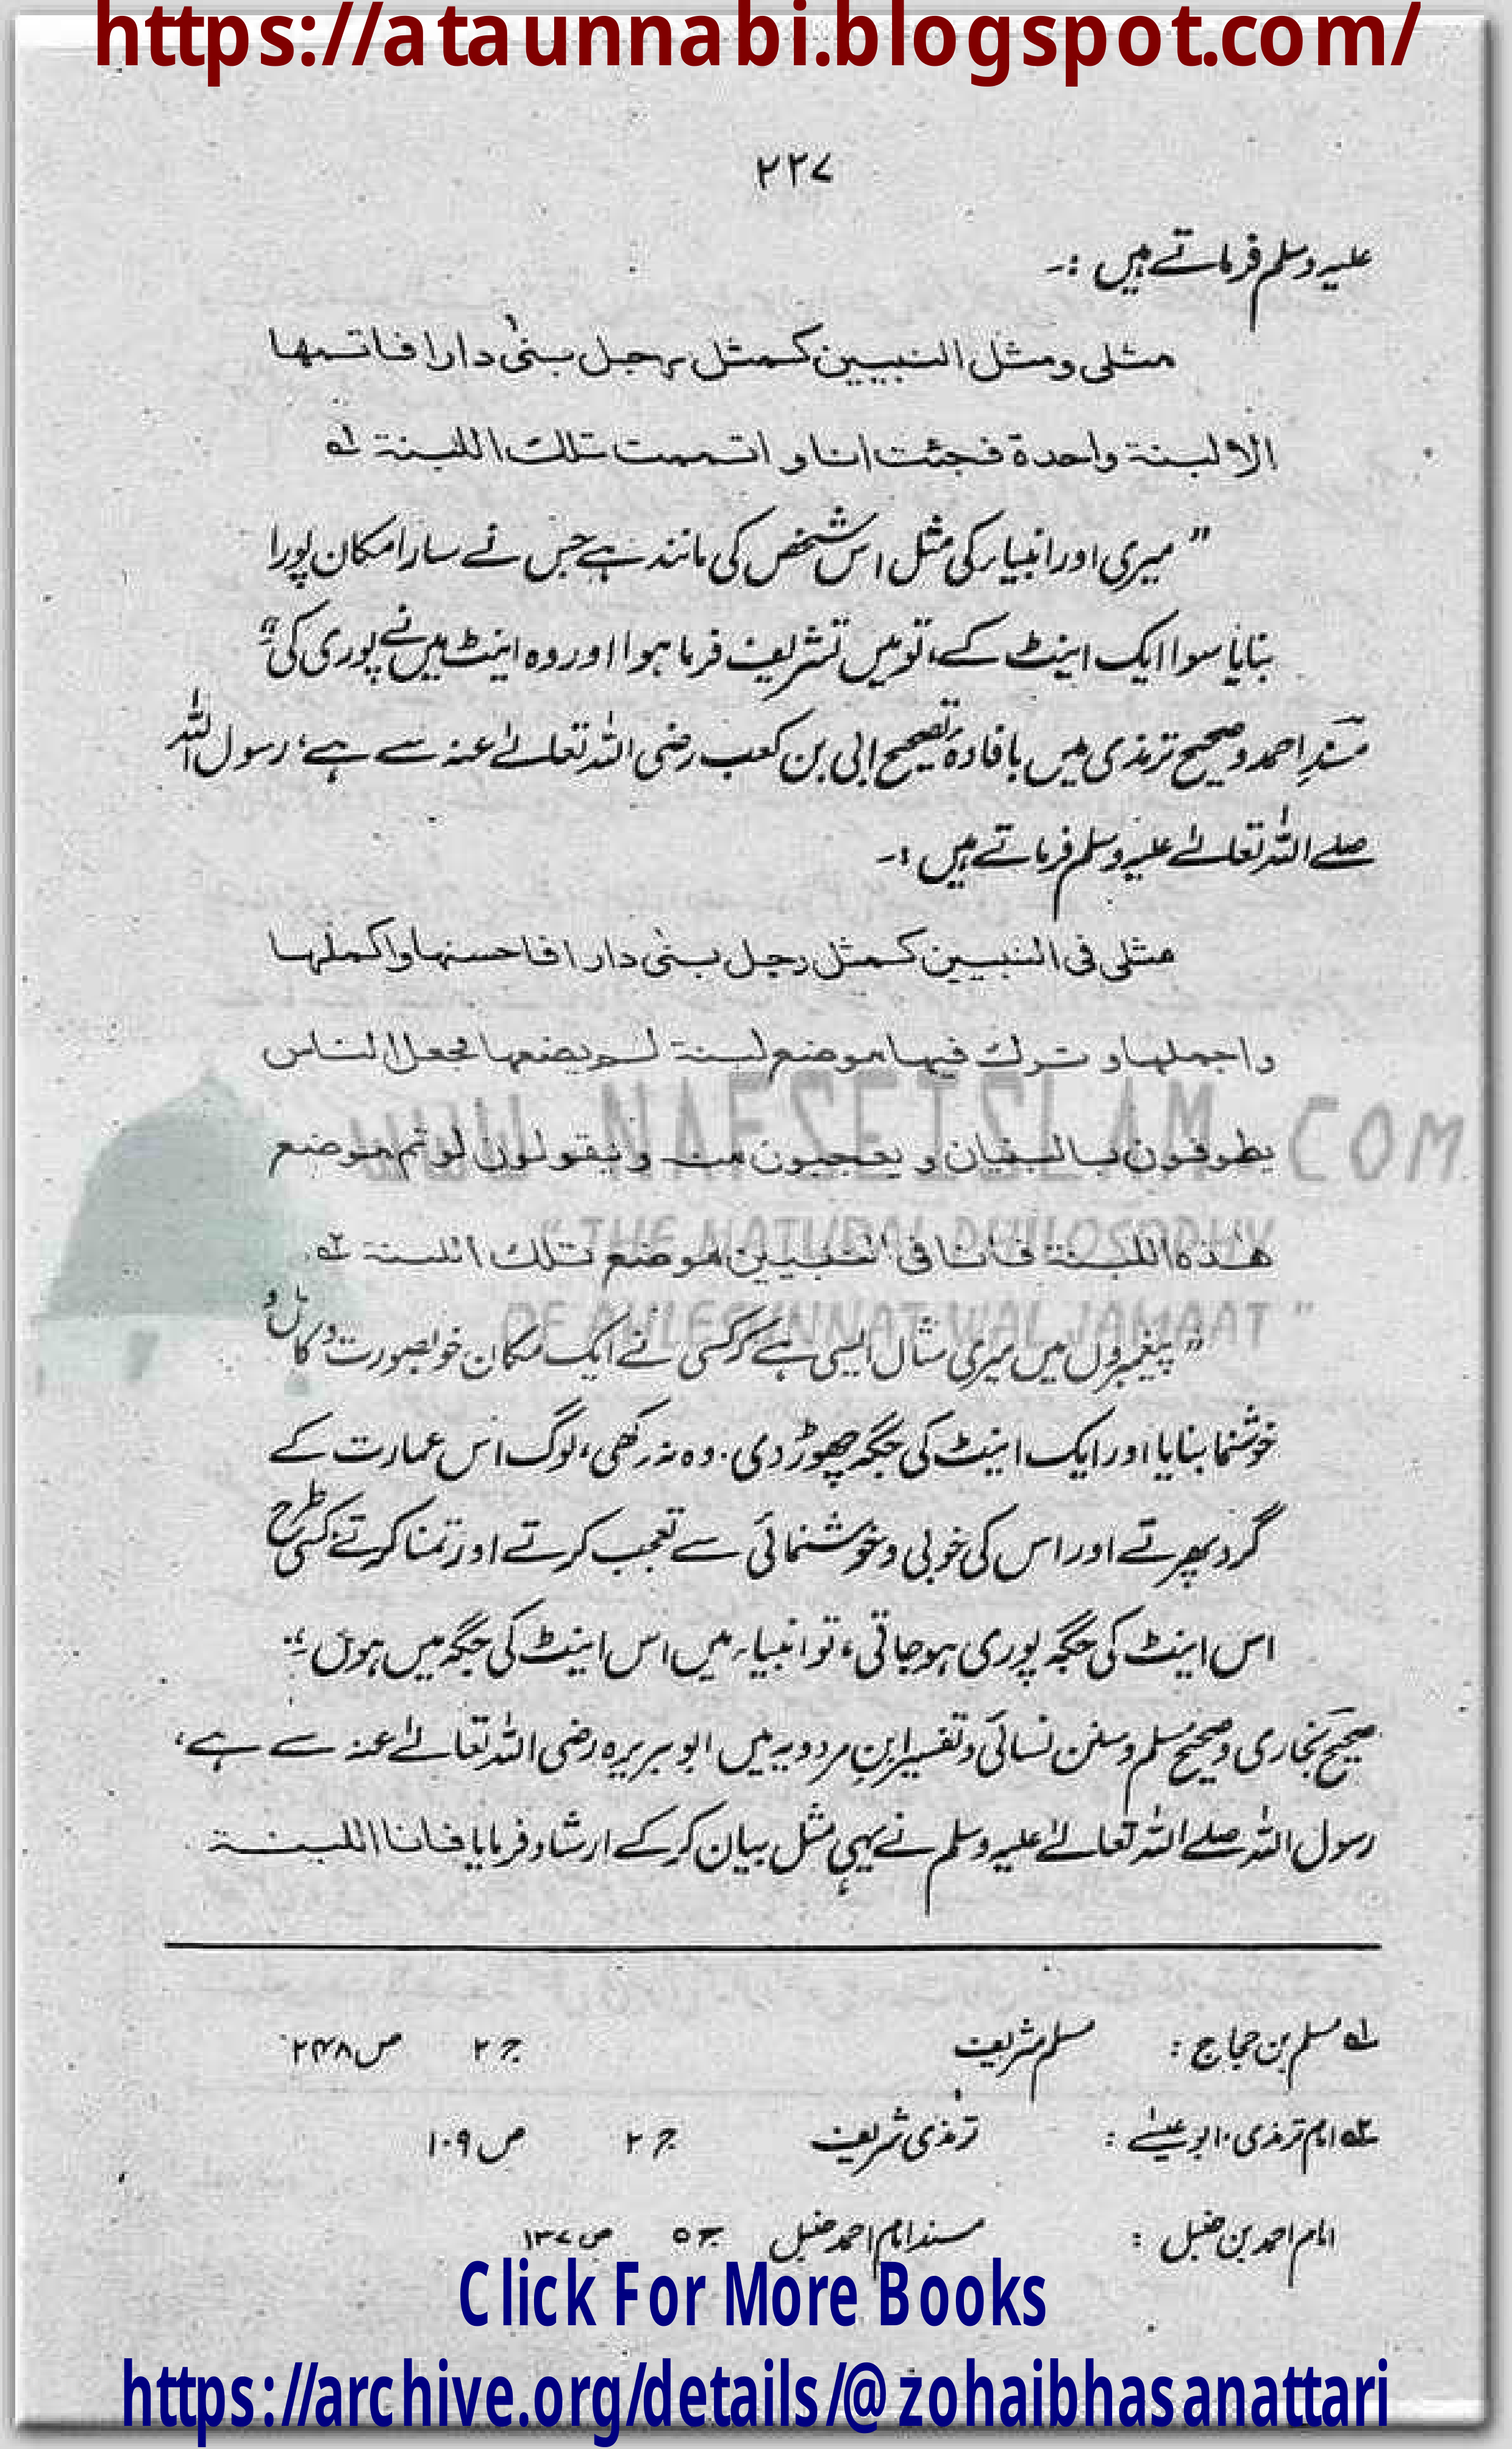 https://ataunnabi.blogspot.com/
۲۲۷
علیہ وسلم فرماتے ہیں :۔
مثلی ومثل النبیین کمثل رجل بنیٰ دارا فاتمها
الا لبنۃ واحدۃ فجئت انا و اتممت تلک اللبنۃ ۱ھ
” میری اور انبیاء کی مثل اس شخص کی مانند ہے جس نے سارا مکان پورا
بنایا سوا ایک اینٹ کے، تو میں تشریف فرما ہوا اور وہ اینٹ میں نے پوری کی“
مسندِ احمد و صحیح ترمذی میں بافادۂ تصحیح ابی بن کعب رضی اللہ تعالےٰ عنہ سے ہے، رسول اللہ
صلے اللہ تعالےٰ علیہ وسلم فرماتے ہیں :۔
مثلی فی النبیین کمثل رجل بنیٰ دارا فاحسنها واکملها
واجملها و ترک فیها موضع لبنۃ لم یضعها فجعل الناس
یطوفون بالبنیان و یعجبون منہ و یقولون لو تم موضع
هذہ اللبنۃ فانا فی النبیین موضع تلک اللبنۃ ۲ھ
WWW.NAFSEISLAM.COM
"THE NATURAL PHILOSOPHY
OF AHLESUNNAT WAL JAMAAT"
” پیغمبروں میں میری مثال ایسی ہے کہ کسی نے ایک مکان خوبصورت و کامل و
خوشنما بنایا اور ایک اینٹ کی جگہ چھوڑ دی۔ وہ نہ رکھی، لوگ اس عمارت کے
گرد پھرتے اور اس کی خوبی و خوشنمائی سے تعجب کرتے اور تمنا کرتے کسی طرح
اس اینٹ کی جگہ پوری ہو جاتی، تو انبیاء میں اس اینٹ کی جگہ میں ہوں“
صحیح بخاری و صحیح مسلم و سنن نسائی و تفسیر ابن مردویہ میں ابو ہریرہ رضی اللہ تعالےٰ عنہ سے ہے،
رسول اللہ صلے اللہ تعالےٰ علیہ وسلم نے یہی مثل بیان کر کے ارشاد فرمایا فانا اللبنۃ
۱ھ مسلم بن حجاج : مسلم شریف ج ۲ ص ۲۴۸
۲ھ امام ترمذی۔ ابو عیسےٰ : ترمذی شریف ج ۲ ص ۱۰۹
امام احمد بن حنبل : مسند امام احمد حنبل ج ۵ ص ۱۳۷
Click For More Books
https://archive.org/details/@zohaibhasanattari